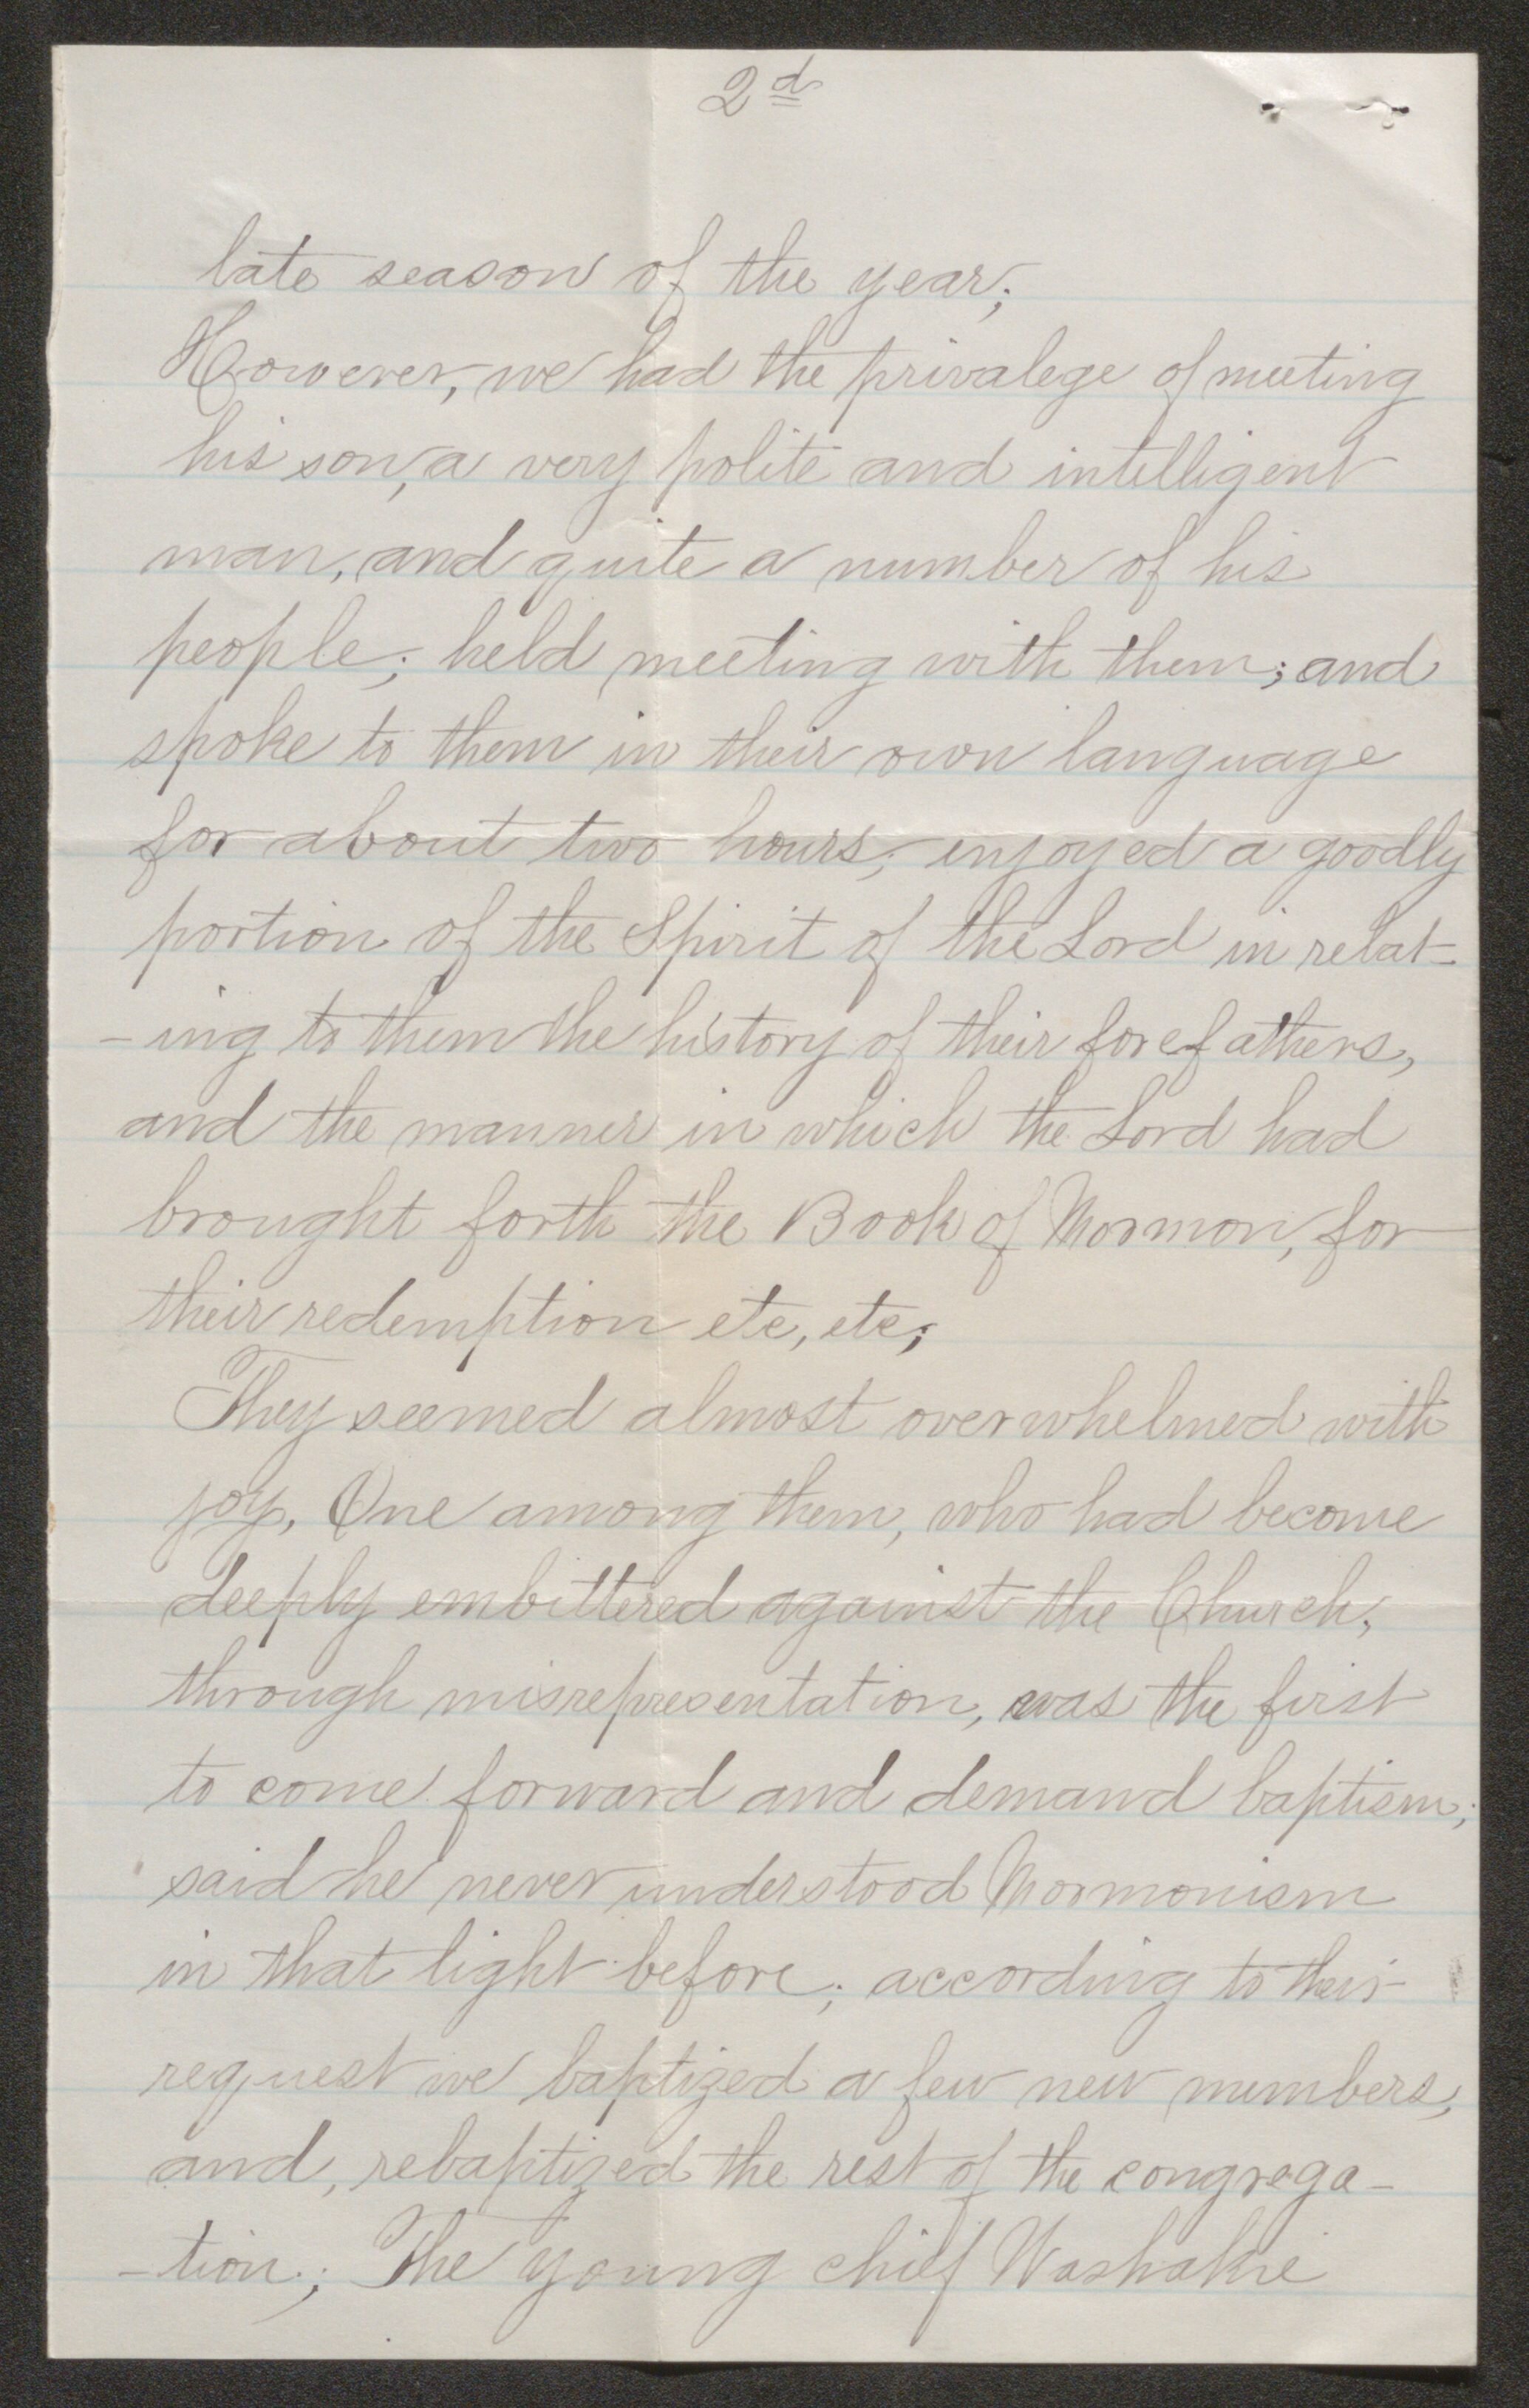 2d
late season of the year;
However, we had the privalege of meeting
his son, a very polite and intelligent
man, and quite a number of his
people; held meeting with them; and
spoke to them in their own language
for about two hours; enjoyed a goodly
portion of the Spirit of the Lord in relat-
-ing to them the history of their forefathers,
and the manner in which the Lord had
brought forth the Book of Mormon, for
their redemption etc, etc;
They seemed almost overwhelmed with
joy, One among them, who had become
deeply embittered against the Church,
through misrepresentation, was the first
to come forward and demand baptism;
said he never understood Mormonism
in that light before; according to their
request we baptized a few new members,
and, rebaptized the rest of the congrega-
-tion; The young chief Washakie